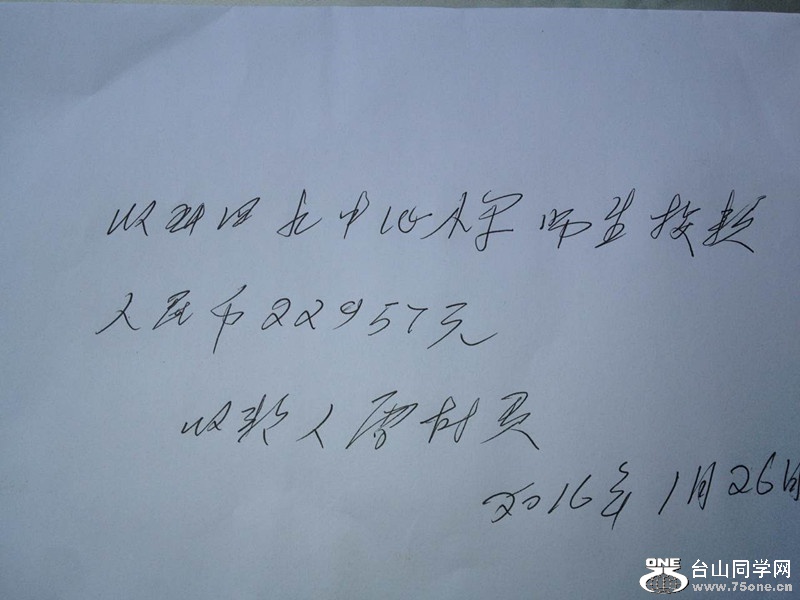 收到 中心小学师生捐款
人民币22957元
收款人雷
2016年1月26日
ONE 台山同学网
www.75one.cn